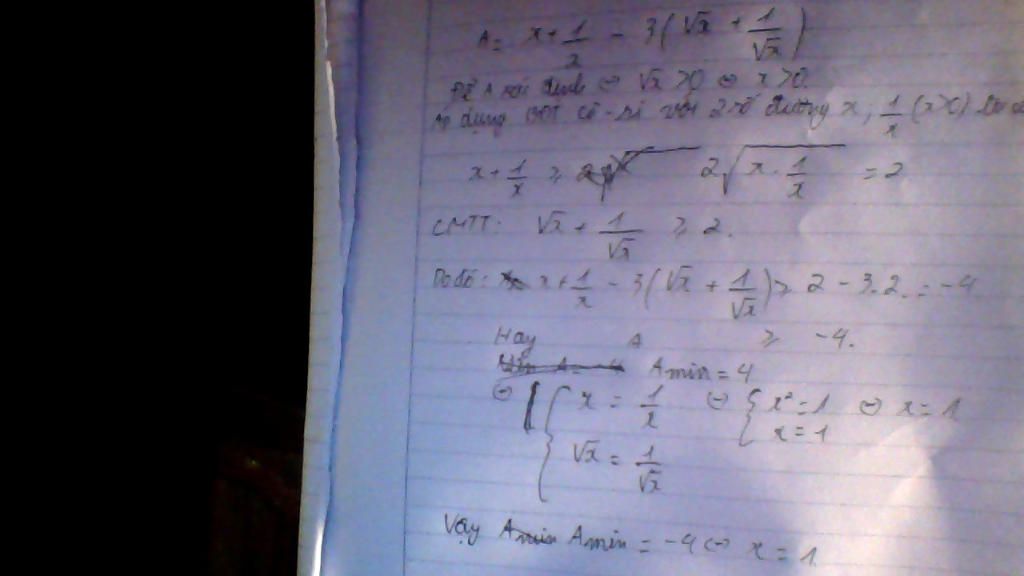 A = x + 1/x - 3(√x + 1/√x)
Để A xác định ⇔ √x > 0 ⇔ x > 0.
Áp dụng BĐT Cô-si với 2 số dương x; 1/x (x>0)
x + 1/x ≥ 2√(x . 1/x) = 2
CMTT: √x + 1/√x ≥ 2.
Do đó: x + 1/x - 3(√x + 1/√x) ≥ 2 - 3.2. = -4
Hay A ≥ -4.
Min A = -4 Amin = 4
⇔ { x = 1/x ⇔ { x² = 1 ⇔ x = 1
√x = 1/√x x = 1
Vậy Amin Amin = -4 ⇔ x = 1.